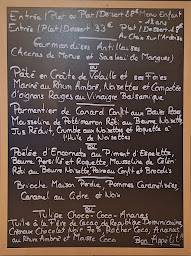 Entrée / Plat ou Plat / Dessert 28€ Menu Enfant
Entrée / Plat / Dessert 33€
Au Choix sur l'Ardoise
Gourmandises Antillaises
(Accras de Morue et Samoussas de Mangues)
ou
Pâté en Croûte de Volaille et ses Foies
Mariné au Rhum Ambré, Noisettes et Compotée
d'Oignons Rouges au Vinaigre Balsamique
Parmentier de Canard Confit aux Deux Roses
Mousseline de Potimarron Rôti au Beurre Noisette,
Jus Réduit, Crumble aux Noisettes et Roquette à
l'Huile de Noisettes
ou
Poêlée d'Encornets au Piment d'Espelette,
Beurre Persillé et Roquette, Mousseline de Céleri
Rôti au Beurre Noisette, Poireau Confit et Brocolis
Brioche Maison Perdue, Pommes Caramélisées,
Caramel au Cidre et Noix
ou
Tulipe Choco-Coco-Ananas
Tuile à la Fève de Cacao de République Dominicaine,
Crémeux Chocolat Noir, Rocher Coco, Ananas
au Rhum Ambré et Mousse Coco
Bon Appétit !